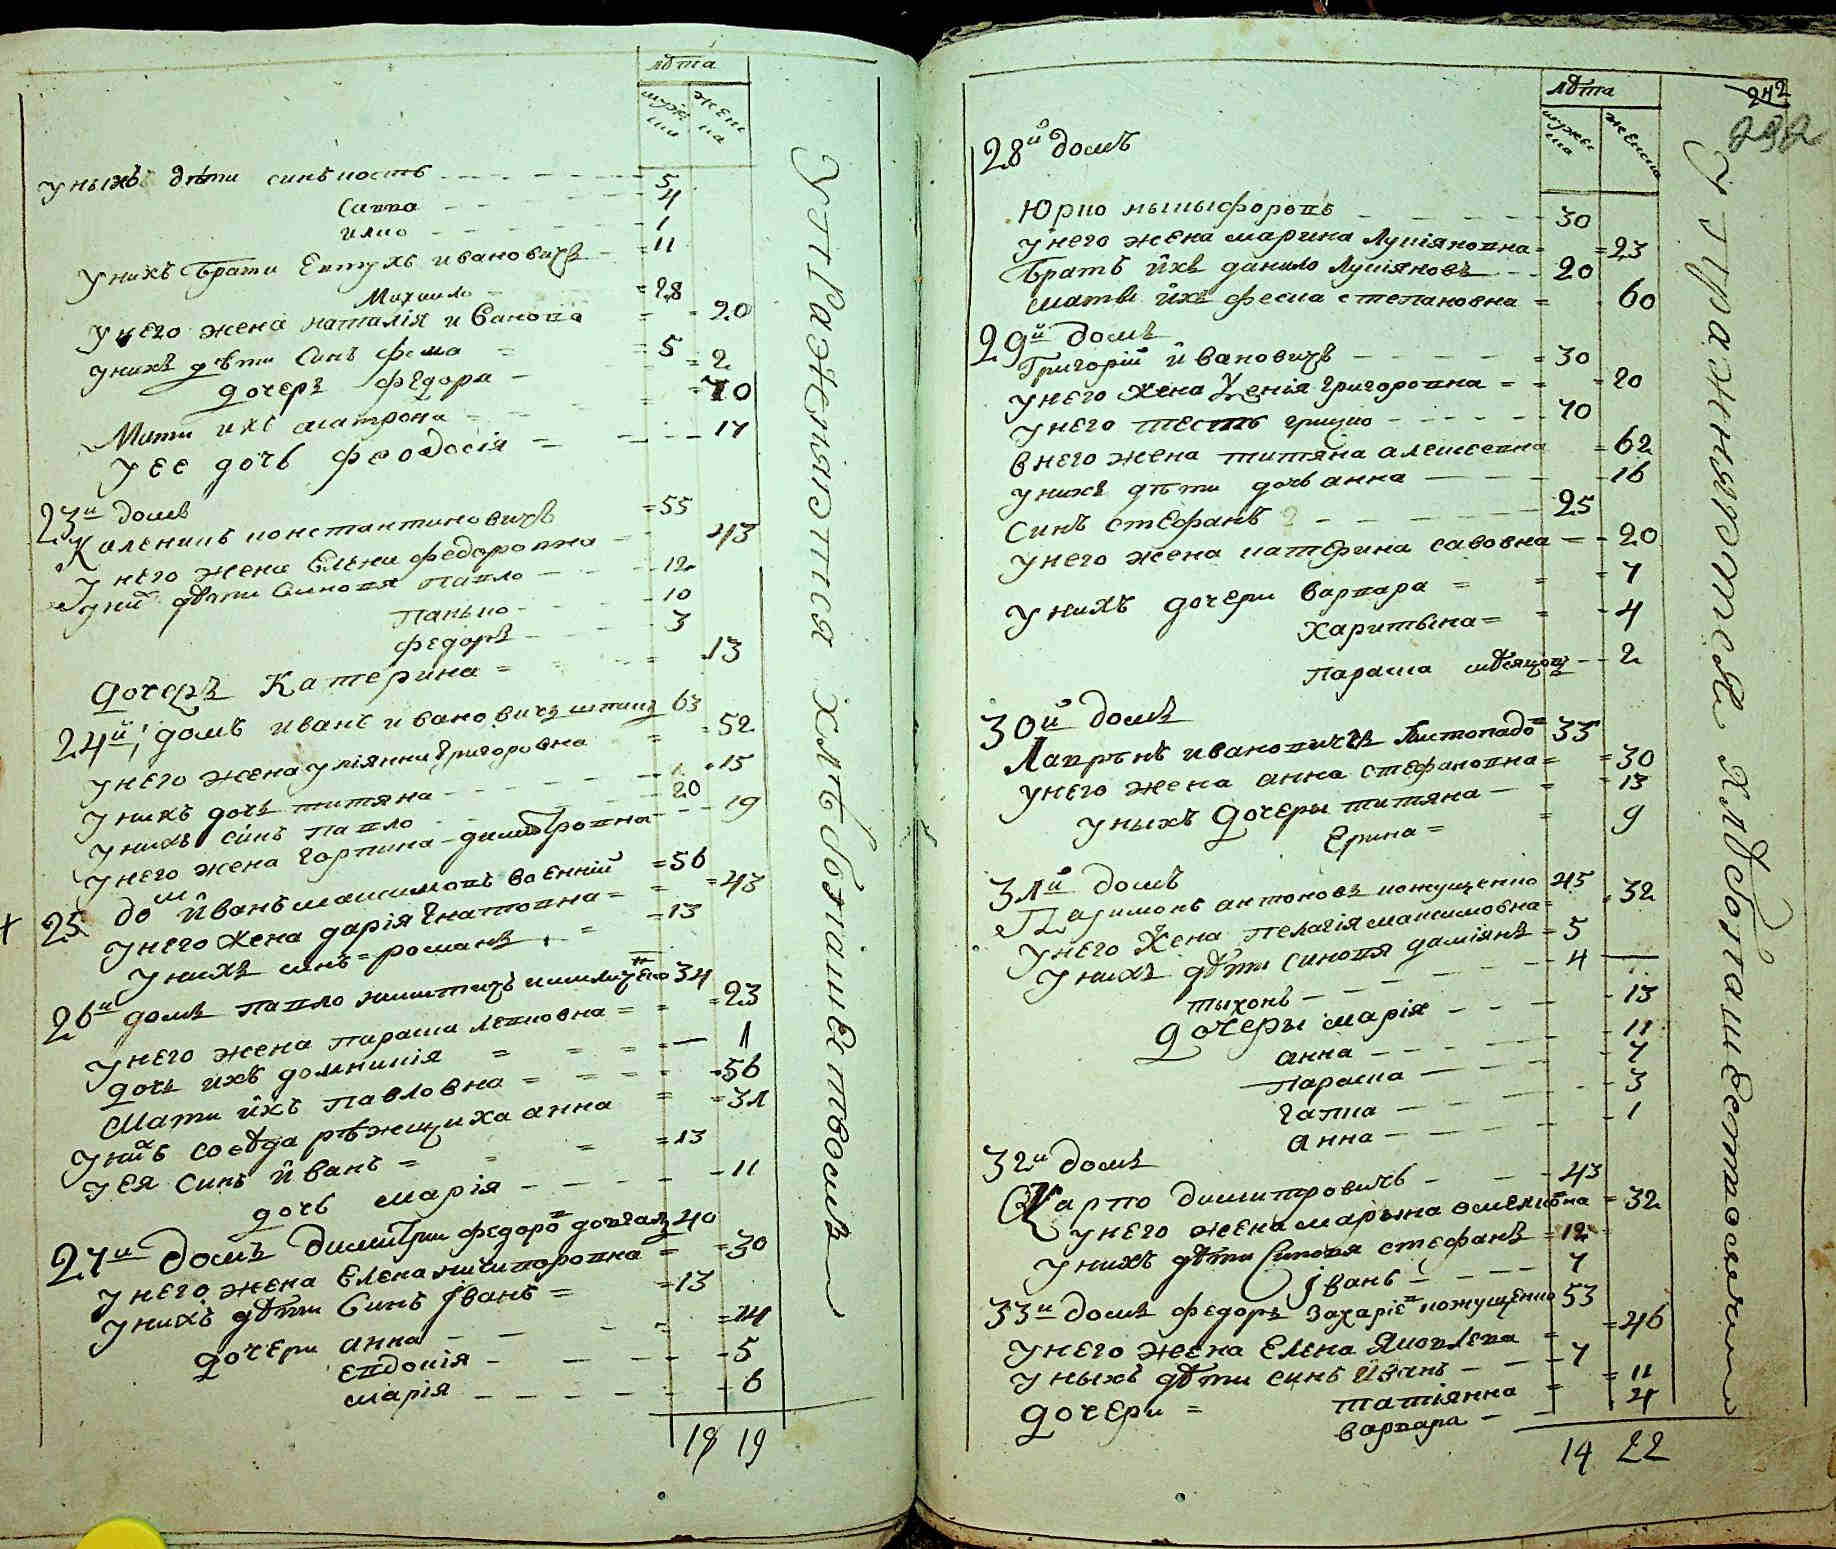 лѣта
мужи женс
на
уныхъ дѣти синъ костъ 5
Савка 4
илко 1
унихъ брати Евтухъ ивановичъ 11
Михаило 28
унего жена наталія иванова 20
унихъ дѣти Синъ фома 5
дочеръ федора 2
Мати ихъ матрона 70
у ее дочь феодосія 17
23й домъ
Каленикъ константиновичъ 55
унего жена Елена федоровна 43
уних дѣти Синовя павло 12
панько 10
федоръ 3
дочеръ Катерина 13
24й домъ иванъ ивановичъ 63
унего жена уліянна григоровна 52
унихъ дочъ титяна 15
унихъ синъ павло 20
унего жена горпина димитровна 19
25 дом иванъ максимовъ военній 56
унего жена дарія игнатовна 43
унихъ синъ романъ 13
26й домъ павло 34
унего жена параска левковна 23
дочъ ихъ домникія 1
Мати ихъ павловна 56
уних сосѣда рѣжщиха анна 31
у ея синъ иванъ 13
дочъ марія 11
27й домъ Димитри федоро довгаль 40
унего жена Елена ничипоровна 30
унихъ дѣти Синъ Іванъ 13
дочери анна 14
евдокія 5
марія 6
19 19
Упражняются хлѣбопашествомъ
242
292
лѣта
мужес женска
на
28й домъ
Юрко никифоровъ 30
унего жена марина лукіяновна 23
братъ ихъ данило лукіяновъ 20
мати ихъ феска степановна 60
29й домъ
Григорій ивановичъ 30
унего жена Ксенія григоровна 20
унего тесть грицко 70
внего жена титяна алексеевна 62
унихъ дѣти дочъ анна 16
Синъ стефанъ 25
унего жена катерина савовна 20
унихъ дочери варвара 7
харитына 4
параска мѣсяцощ 2
30й домъ
Лавринъ ивановичъ листопадъ 33
унего жена анна стефановна 30
уныхъ дочеры титяна 13
Ерина 9
31й домъ
Паримонъ антоновъ кожущенко 45
унего жена пелагія максимовна 32
унихъ дѣти синовя даміянъ 5
тыхонъ 4
дочеры марія 13
анна 11
параска 7
гапка 3
анна 1
32й домъ
Карпо димитровичъ 43
унего жена марына омелкова 32
унихъ дѣти Синовя стефанъ 12
Іванъ 7
33й домъ федоръ Захаріе кожущенко 53
унего жена Елена Яковлева 46
уныхъ дѣти синъ иванъ 7
дочери татіянна 11
варвара 4
14 22
Упражняются хлѣбопашествомъ